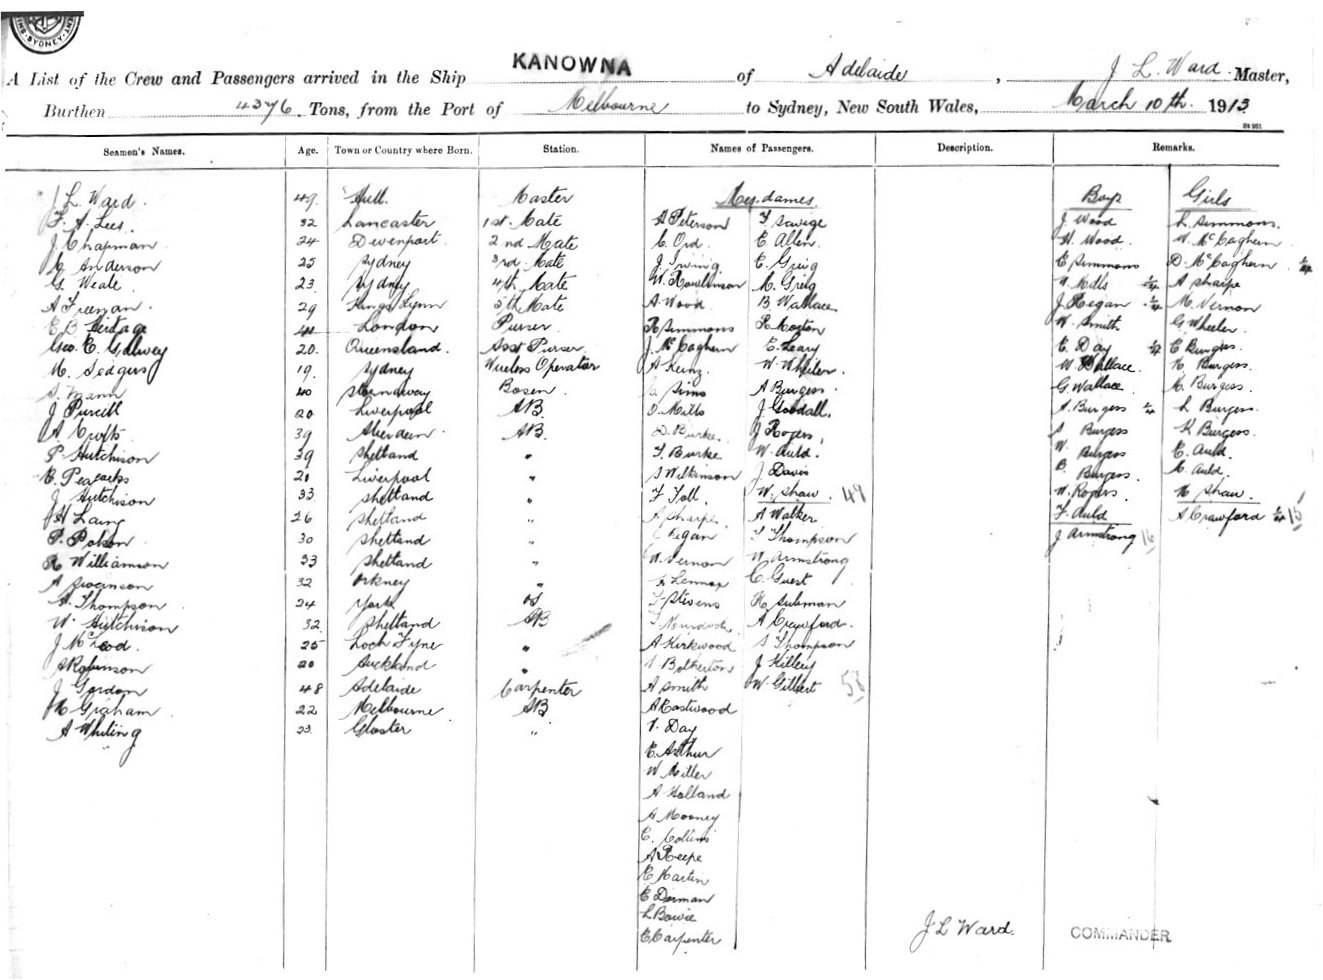 SYDNEY
KANOWNA
A List of the Crew and Passengers arrived in the Ship of Adelaide, J L. Ward Master,
Burthen 4376 Tons, from the Port of Melbourne to Sydney, New South Wales, March 10th. 1913
St 961
Seamen's Names. Age. Town or Country where Born. Station. Names of Passengers. Description. Remarks.
J L. Ward. 49. Hull. Master Mesdames. Boys Girls
F. A. Lees. 32 Lancaster 1st. Mate A Peterson F Savige J. Wood L Simmons.
J. Chapman. 24 Devenport. 2nd Mate C. Ord. E Allen. H. Wood. W. McCaghern
Anderson 25 Sydney 3rd. Mate J Irving. E. Greig E Simmons D. McCaghern
G. Weate. 23. Sydney 4th. Mate W. Rawlinson M. Greig Mills A Sharpe
A Freeman. 29 Kings Lynn 5th Mate A. Wood B Wallace. J. Regan M. Vernon
E B Heritage 41 London Purser. R Simmons R Morton W. Smith G Wheeler.
Geo. E. Galwey 20. Queensland. Asst Purser. J. McCaghern E. Leary E. Day E Burgess.
M. Sedgers 19. Sydney Wireless Operator A King. W. Wheeler. W. Wallace. Burgess.
S. Mann 40 Stornoway Bosen. Sims A Burgess. G Wallace. M. Burgess.
J Purcell 20 Liverpool AB D. Mills J Goodall. A. Burgess L Burgess.
A Crofts 39 Aberdeen. AB. D. Burke. J Rogers, Burgess K Burgess.
P. Hutchison 39 Shetland " F. Burke W. Auld. W. Burgess E. Auld.
E. Peacocks 21 Liverpool " Wilkinson J Davis B. Burgess. Auld.
J Hutchison 33 Shetland " F Toll. W. Shaw. 49 W. Rogers. Shaw.
Laing 26 Shetland " A Sharpe. A Walker F. Auld A Crawford 15
P. 30 Shetland " Regan F Thompson J Armstrong 16
R Williamson 33 Shetland " Vernon Armstrong
A Swanson 32 Orkney " Lennox C. Guest
A. Thompson 24 York OS Stevens R. Subman
W. Hutchison 32 Shetland AB Murdoch A Crawford.
J McLeod. 25 Loch Fyne " A Kirkwood Thompson
Robinson 20 Auckland " Bolkerton J Killey
J Gordon 48 Adelaide Carpenter A Smith W. Gilbert 58
Graham 22 Melbourne AB A Eastwood
A Whiting 23. Gloster " Day
E. Arthur
W Miller
A Holland
A Mooney
E. Collins
A Reepe
E Martin
E Dorman
L Bowie
E. Carpenter
J L Ward. COMMANDER